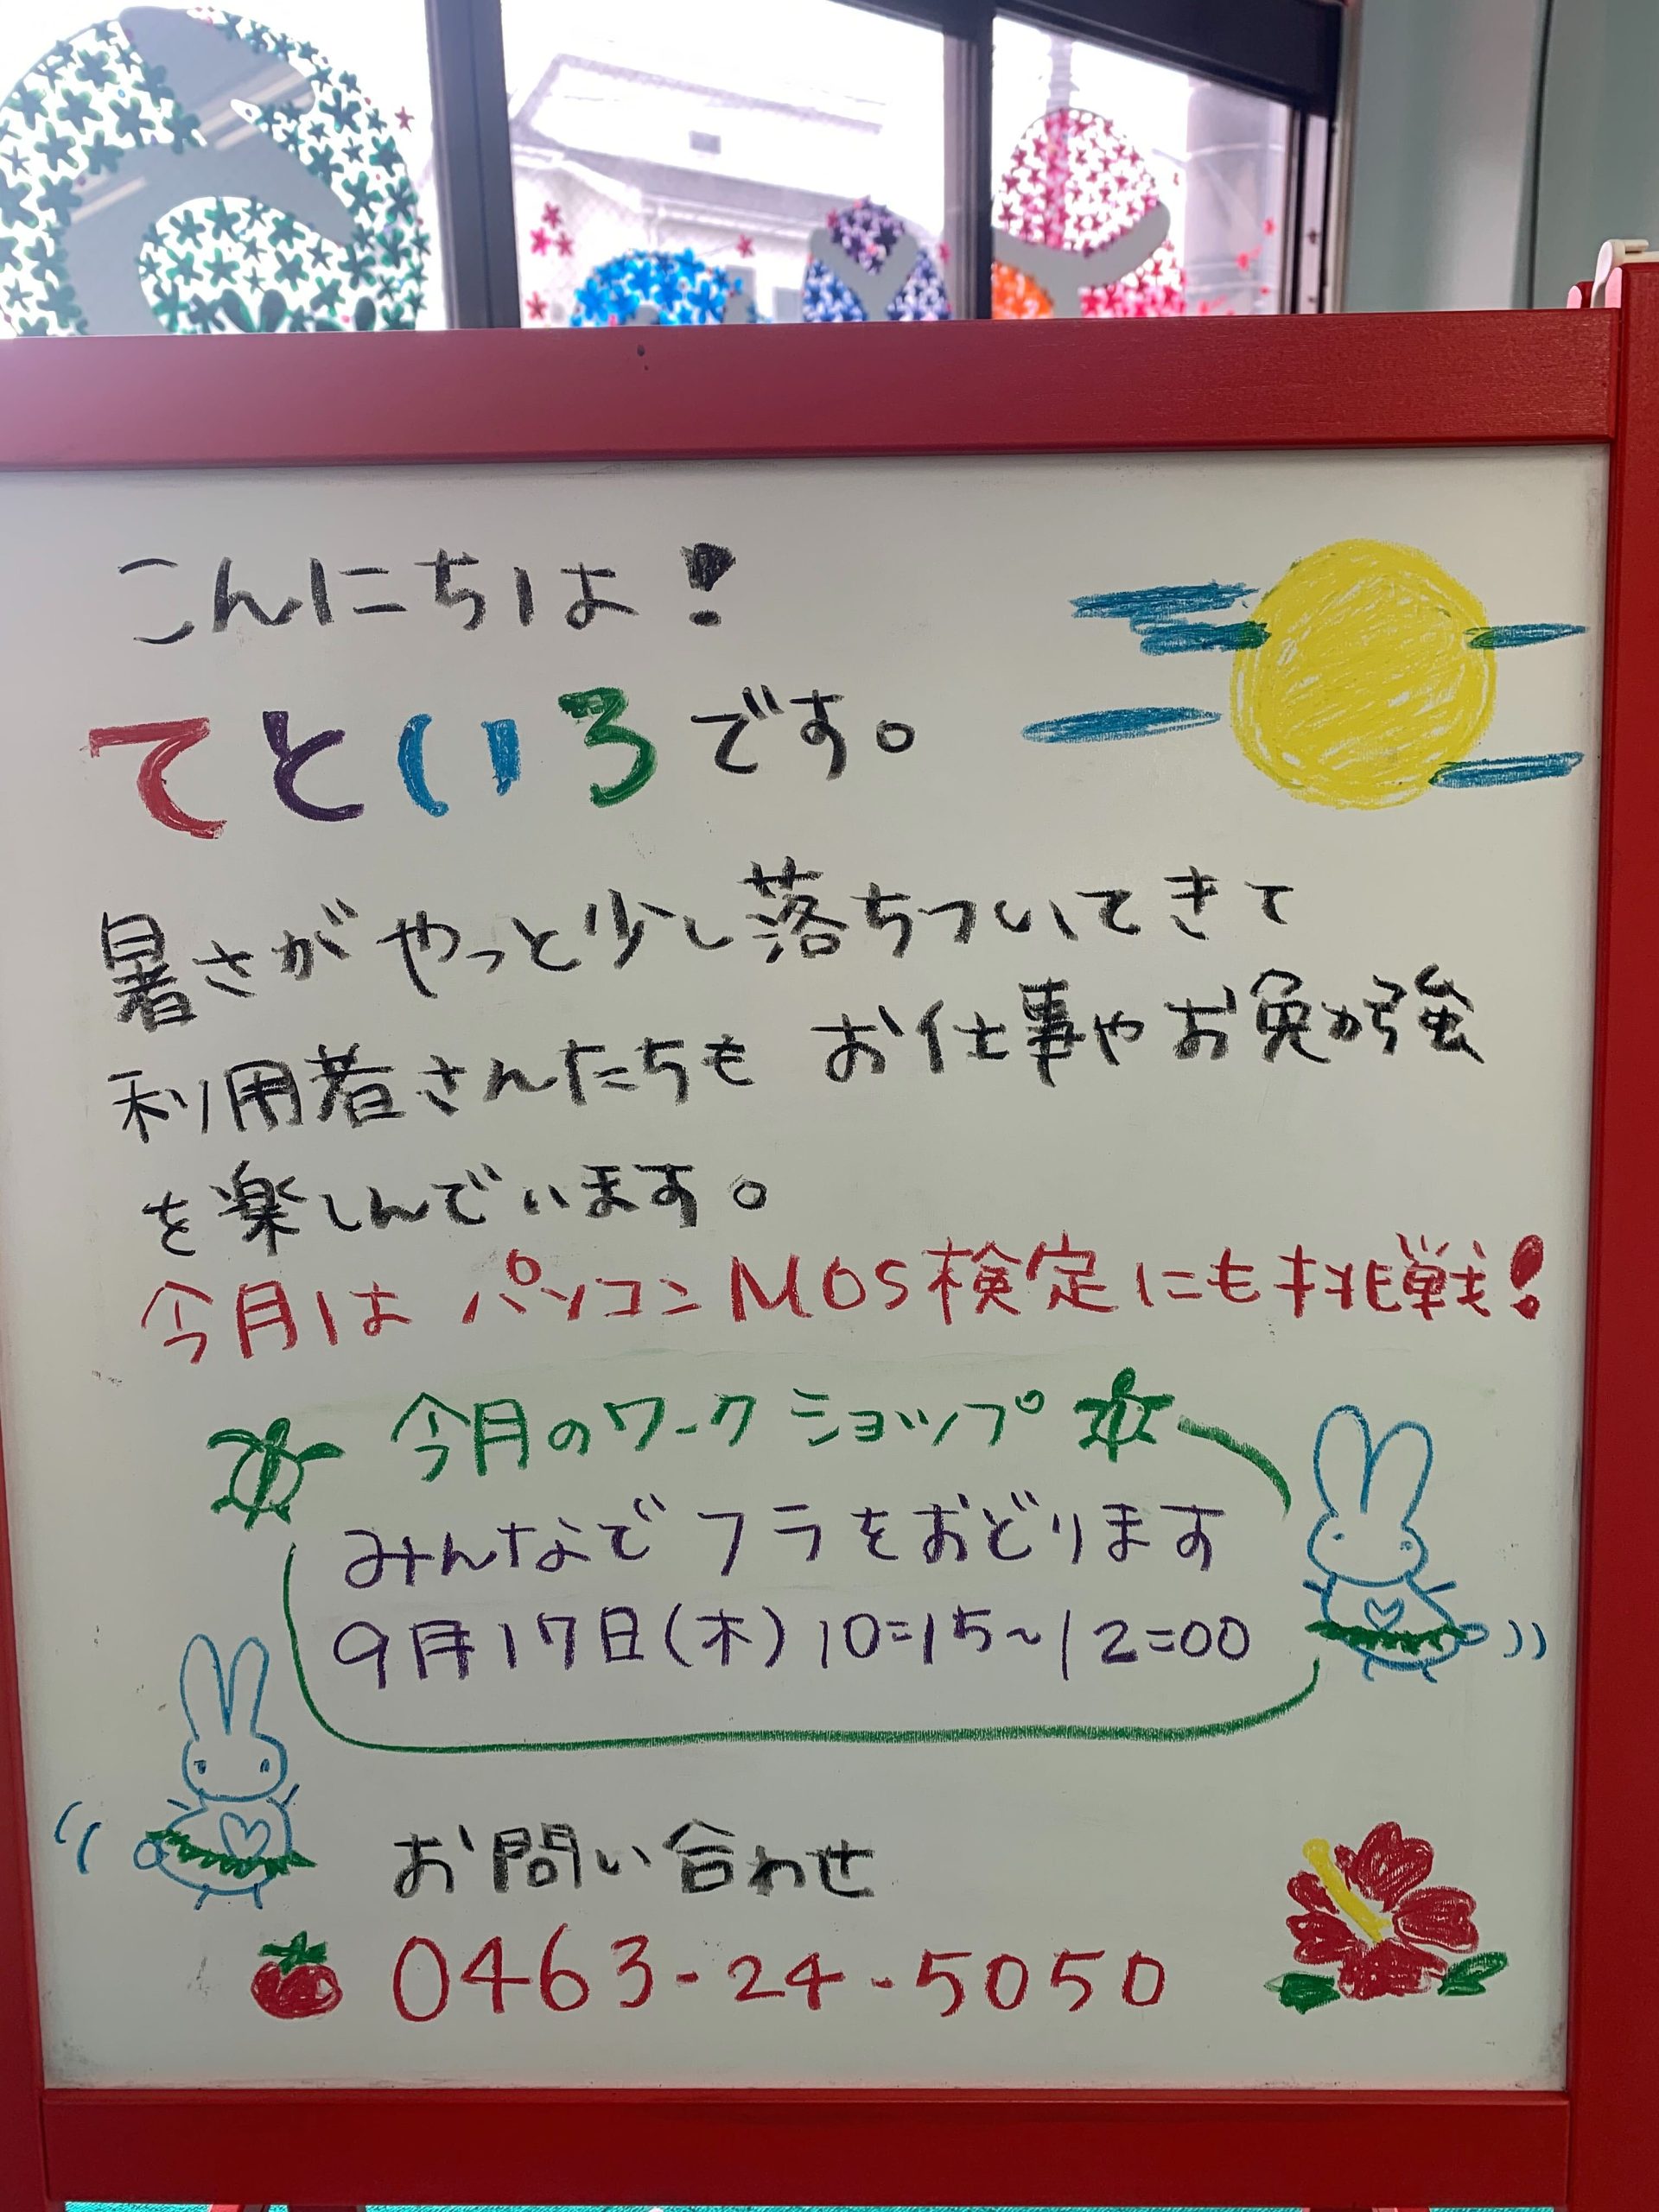 こんにちは!
てといろです。
暑さがやっと少し落ちついてきて
利用者さんたちも お仕事やお勉強
を楽しんでいます。
今月は パソコンMOS検定にも挑戦!
今月のワークショップ
みんなで フラをおどります
9月17日(木) 10:15~12:00
お問い合わせ
0463-24-5050